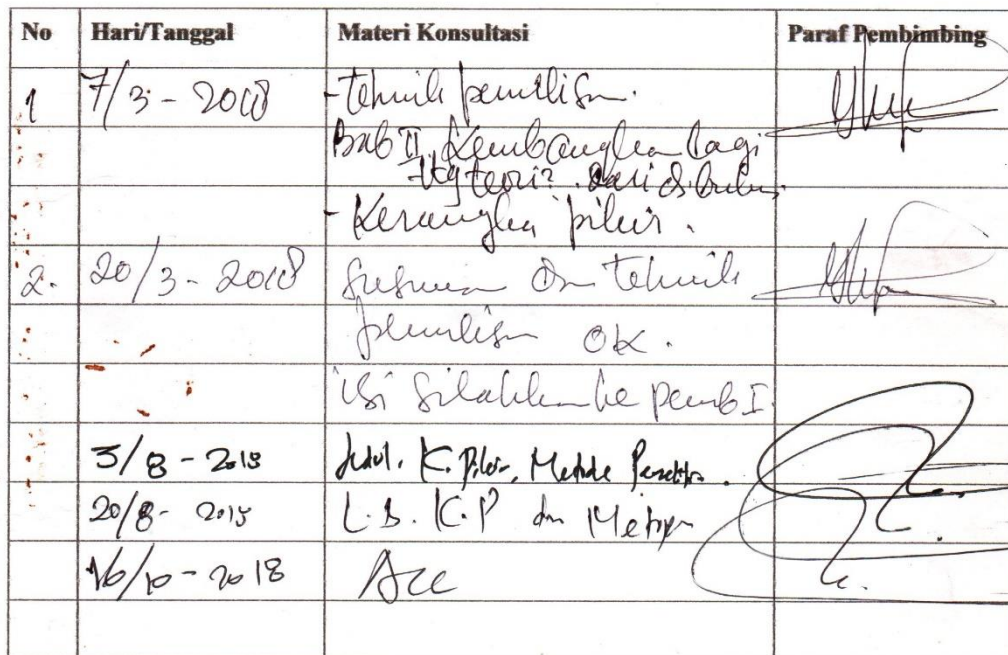 No Hari/Tanggal Materi Konsultasi Paraf Pembimbing
1 7/3 - 2018 - Tehnik penulisan.
Bab II Kembangkan lagi
ttg teori² dari di buku
- Kerangka pikir.
2. 20/3 - 2018 Susunan dan tehnik
penulisan OK.
isi silahkan ke pemb I.
3/8 - 2018 Judul. K. Pikir, Metode Penelitian.
20/8 - 2018 L.B. K.P dan
16/10 - 2018 Acc